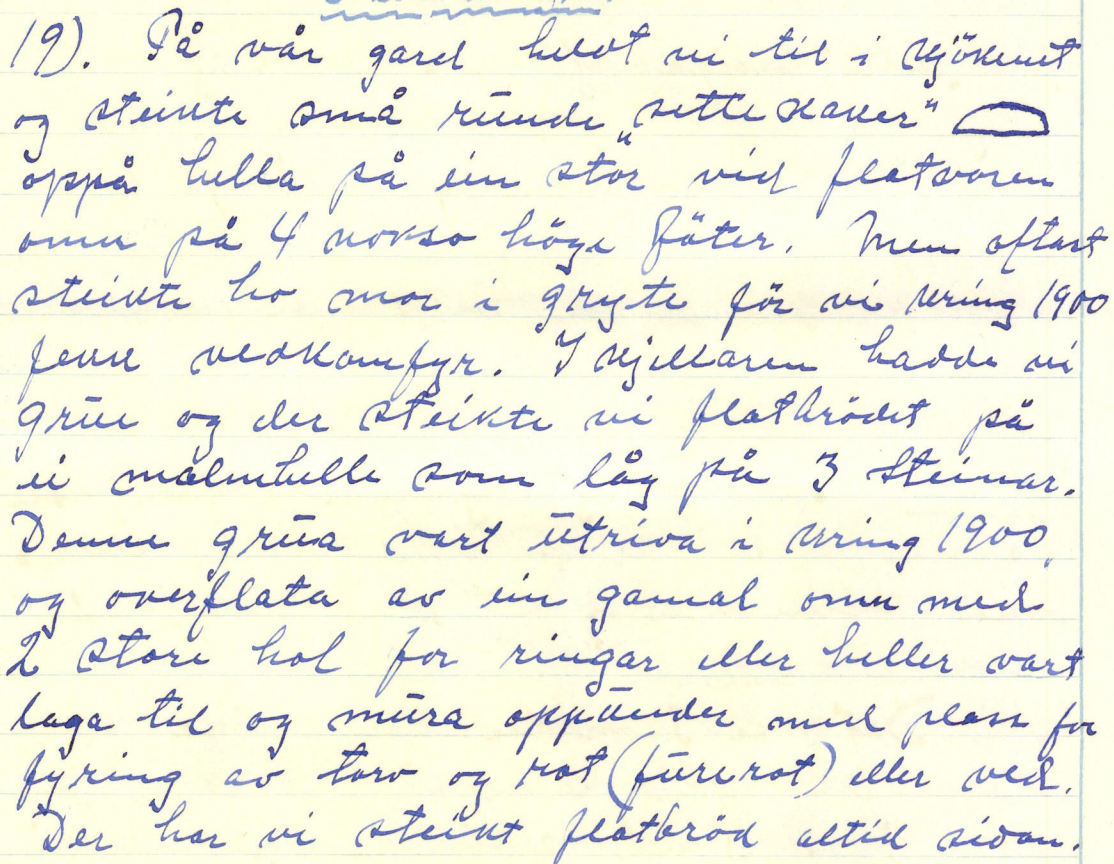 19). På vår gard heldt vi til i kjökenet
og steikte små runde „settekaker“
oppå hella på ein stor vid flatvoren
omn på 4 nokso höge föter. Men oftast
steikte ho mor i gryte för vi kring 1900
fekk vedkomfyr. I kjellaren hadde vi
grue og der steikte vi flatbrödet på
ei malmhelle som låg på 3 steinar.
Denne grua vart utriva i kring 1900
og overflata av ein gamal omn med
2 store hol for ringar eller heller vart
laga til og mura oppunder med plass for
fyring av torv og rot (fururot) eller ved.
Der har vi steikt flatbröd altid sidan.